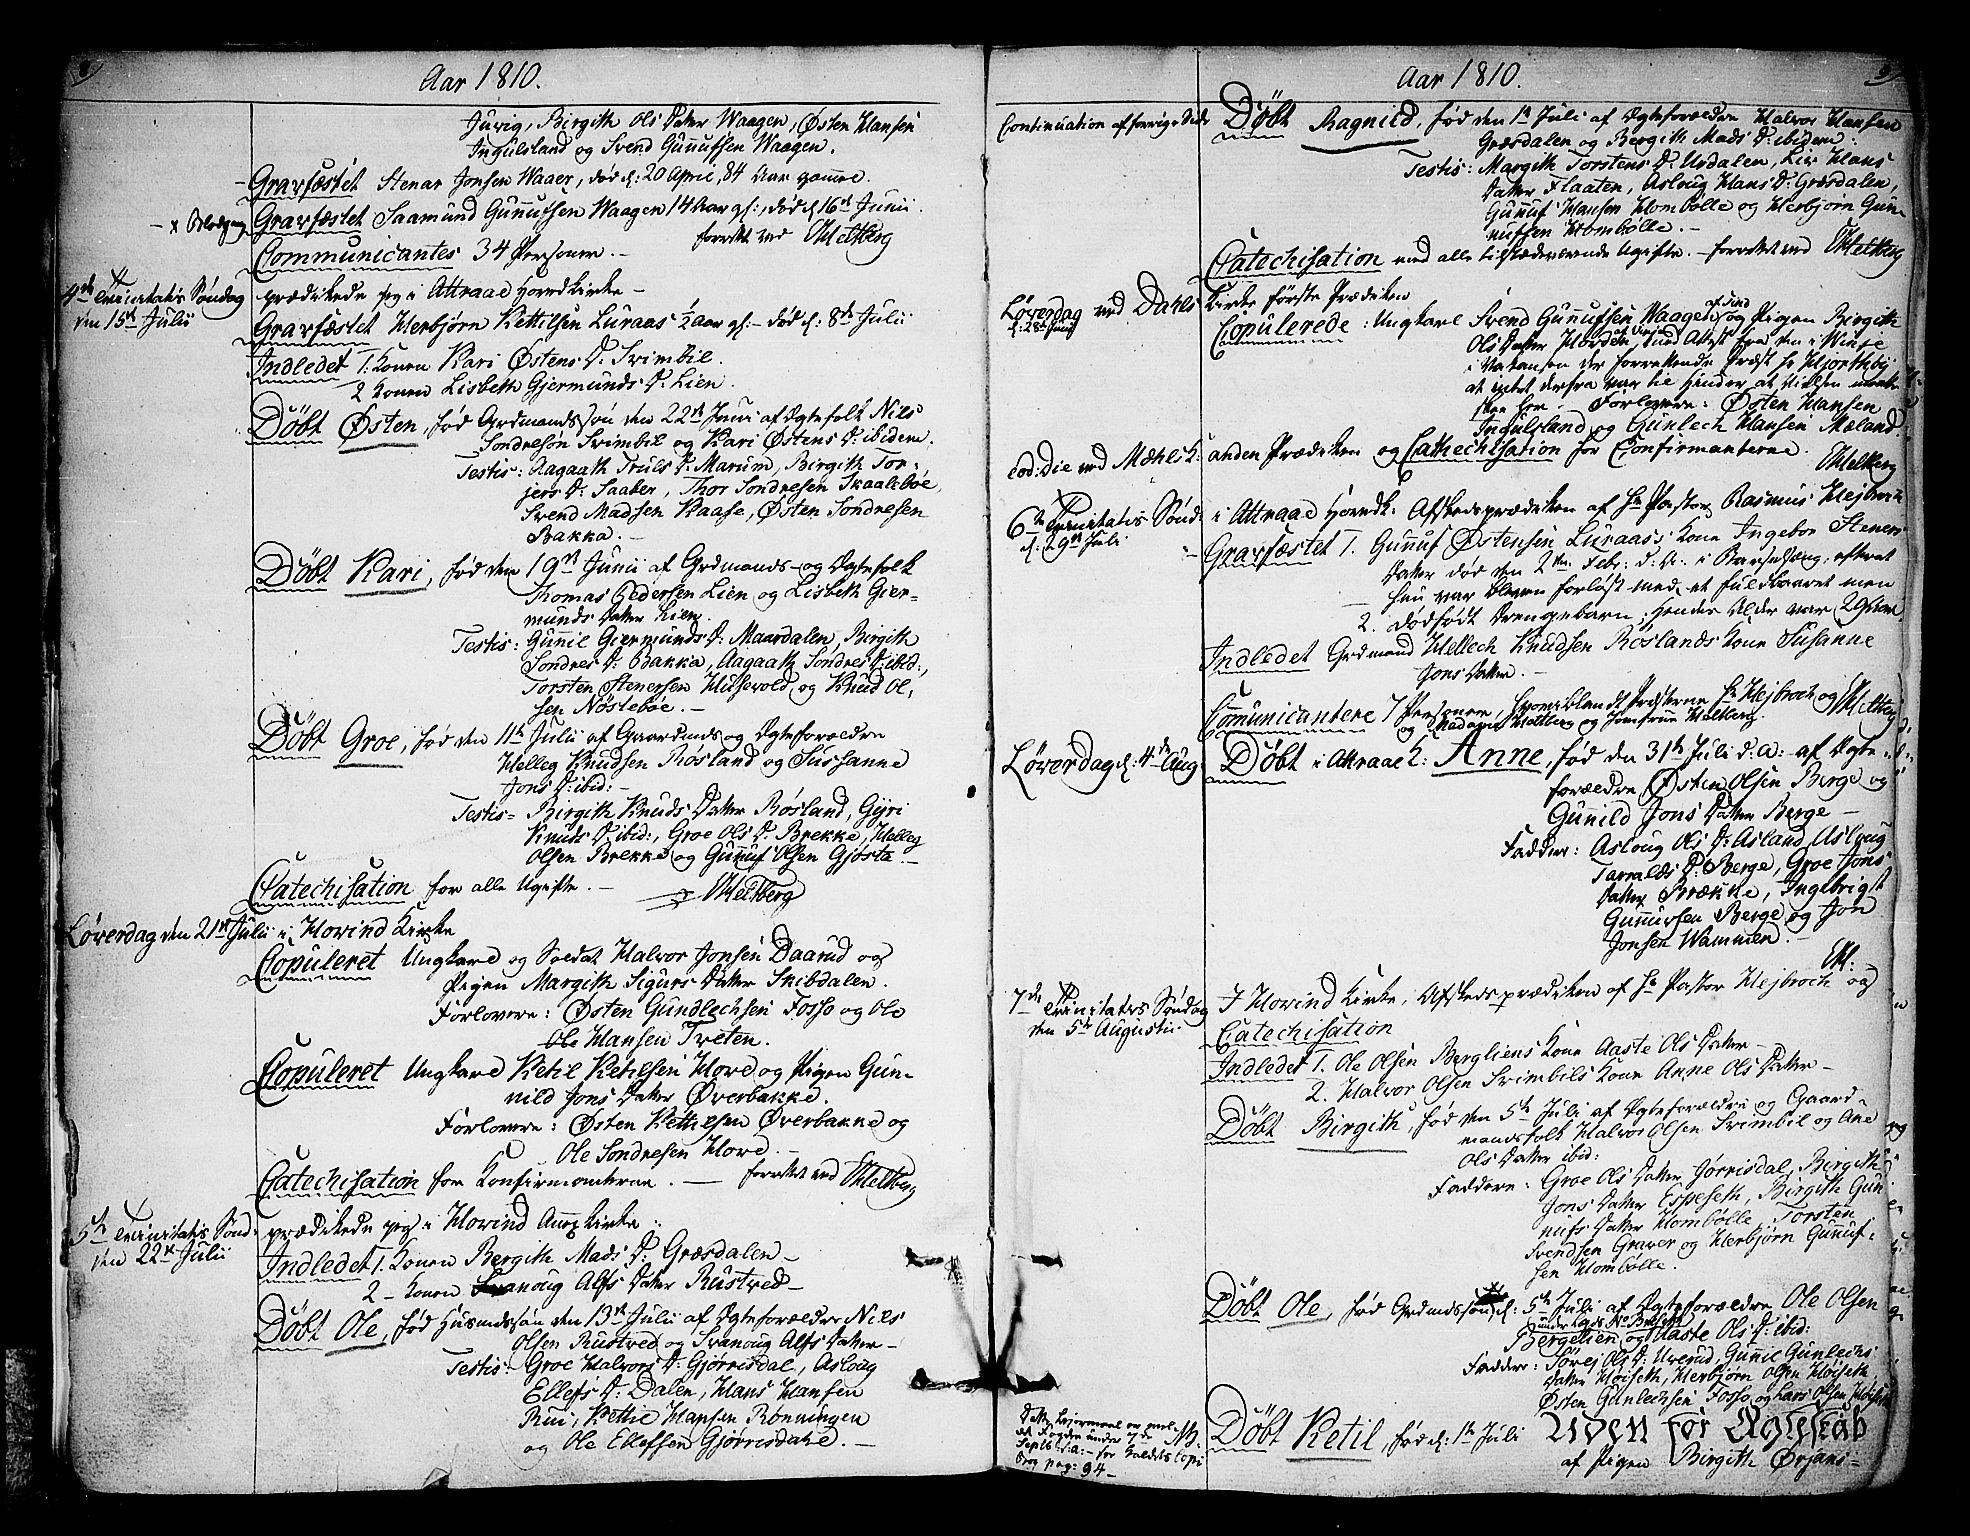 Aar 1810.
Juvig, Birgith Ols Dater Waagen, Østen Hansen
Ingulsland og Svend Gunufsen Waagen.
Gravfæstet Stenar Jonsen Waaer, død d: 20 April, 84 Aar gamle.
Gravfæstet Saamund Gunufsen Waagen 14 Aar gl:, død d 16de Junii.
Communicantes 34 Personer. forrettet ved OMeltberg
4de Trinitatis Søndag prædikede jeg i Attraae Hovedkirke
den 15de Julii
Gravfæstet Herbjørn Kettilsen Luraas ½ Aar gl: død d: 8de Julii
Indledet 1. Konen Kari Østens D. Svimbil.
2 Konen Lisbeth Gjermunds D. Lien.
Døbt Østen, fød Grdmandssøn den 22de Junii af Ægtefolk Nils
Sondresøn Svimbil og Kari Østens D. ibidem.
Testis: Aagaath Truls D. Marum, Birgith Tor-
jers D. Saaber, Thor Sondresen Skaalebøe,
Svend Madsen Kaase, Østen Sondresen
Bakka.
Døbt Kari, fød den 19de Junii af Grdmands- og Ægtefolk
Thomas Pedersen Lien og Lisbeth Gier-
munds Dater Lien.
Testis: Gunnil Giermunds D: Maardalen, Birgith
Sondres D: Bakka, Aagaath Sondres D: ibid:,
Torsten Stenersen Hilsevold og Knud Ol-
sen Nøstebøe.
Døbt Groe, fød den 11te Julii af Gaardmds og Ægteforældre
Helleg Knudsen Røsland og Sussanne
Jons D: ibid:
Testis= Birgith Knuds Dater Røsland, Gyri
Knuds D. ibid:, Groe Ols D. Brekke, Helleg
Olsen Brekke og Gunuf Olsen Gjøsta.
Catechisation for alle Ugifte. OMeltberg
Løverdag den 21de Julii i Hovind Kirke
Copuleret Ungkarl og Soldat Halvor Jonsen Daarud og
Pigen Margith Sigurs Dater Skibdalen.
Forlovere: Østen Gundlechsen Fosso og Ole
Ole Hansen Tveten.
Copuleret Ungkarl Ketil Ketilsen Hove og Pigen Gun-
nild Jons Dater Øverbakke.
Forlovere: Østen Kettilsen Øverbakke og
Ole Sondresen Hove.
Catechisation for Konfirmanterne. forrettet ved OMeltberg
5te Trinitatis Sønd: prædikede jeg i Hovind Annexkirke
den 22de Julii
Indledet 1. Konen Bergith Mads D. Græsdalen
2 Konen Svanoug Alfs Dater Rustved
Døbt Ole, fød Husmdssøn den 13de Julii af Ægteforældre Nils
Olsen Rustved og Svanoug Alfs Dater
Testis: Groe Halvors D. Gjørrisdal, Asloug
Ellefs D: Dalen, Hans Hansen
Rui, Kettil Hansen Rønningen
og Ole Ellefsen Gjørrisdale.
Aar 1810.
Continuation af forrige Side
Døbt Ragnild, fød den 1te Julii af Ægteforældre Halvor Hansen
Græsdalen og Bergith Mads D: ibidem.
Testis: Margith Torstens D. Urdalen, Liv Hans
Dater Flaaten, Asloug Hans D: Græsdalen,
Gunuf Hansen Hombølle og Herbjørn Gun-
nufsen Hombølle.
Catechisation med alle tilstædeværende Ugifte. forrettet ved OMeltberg
Løverdag ved Dahls Kirke første Prædiken
Copulerede: Ungkarl Svend Gunufsen Waagen og Pigen Birgith
Ols Dater
Forlovere: Østen Hansen
Ingulsland og Gunlech Hansen Mæland.
eod: die ved Mæhls K: anden Prædiken og Cathechisation for Confirmanterne. OMeltberg
6te Trinitatis Sønd: i Attraae Hovedk: Afskedsprædiken af Hr Pastor Rasmus Hejbroch
d. 29de Juli
Gravfæstet 1. Gunuf Østensen Luraas's Kone Ingebor Steners
Dater død den 2den Febr: d. A. i Barselsæng, efterat
hun var bleven forløst med et fuldbaaret men
2. dødfødt Drengebarn; hendes Alder var 29 Aar.
Indledet Grdmand Hellech Knudsen Røslands Kone Susanne
Jons Dater.
Communicantere 7 Personer, hvoriblandt Præsterne Hr Hejbroch og OMeltberg
Madame Meltberg og Jomfrue Meltberg.
Løverdag d: 4de Aug:
Døbt i Attraae K: Anne, fød den 31te Juli d. a: af Ægte-
forældre Østen Olsen Berge og
Gunild Jons Dater Berge
Fadder: Asloug Ols D: Asland, Asloug
Tarralds D. Berge, Groe Jons
Dater Brække, Ingebrigt
Gunursen Berge og Jon
Jonsen Wammen.
OM:
7de Trinitatis Søndag I Hovind Kirke, Afskedsprædiken af Hr Pastor Hejbroch og
den 5te Augustii
Catechisation
Indledet 1. Ole Olsen Bergliens Kone Aaste Ols Dater
2. Halvor Olsen Svimbils Kone Anne Ols Dater
Døbt Birgith, fød den 5te Juli af Ægteforældre og Gaard-
mandsfolk Halvor Olsen Svimbil og Ane
Ols Dater ibid:
Faddere: Groe Ols Dater Jørrisdal, Birgith
Jons Dater Espeseth, Birgith Gun-
nufs Dater Hombølle, Torsten
Svendsen Graver og Herbjørn Gunuf-
sen Hombølle.
Døbt Ole, fød Grdmdssøn d: 5te Juli af Ægteforældre Ole Olsen
Bergelien og Aaste Ols D: ibid:
Fadder: Sørej Ols D: Uverud, Gunnil Gunlechs
Dater Høiseth, Herbjørn Olsen Høiseth
Østen Gunlechsen Fosso og Lars Olsen Høiseth
Døbt Ketil, fød d: 1te Juli Uden for Ægteskab
af Pigen Birgith Ørjans-
NB.
pag: 94